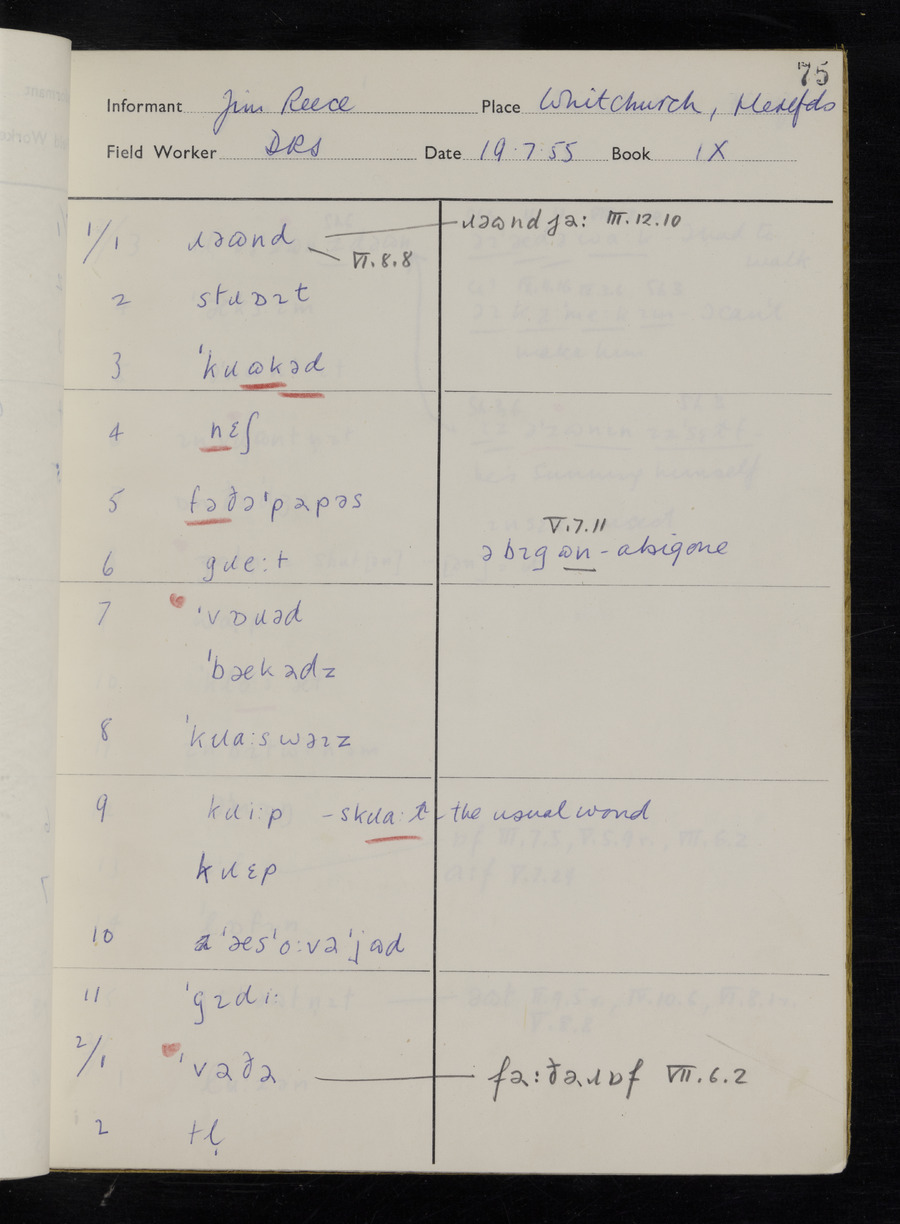 75
Informant Jim Reece Place Whitchurch, Herefds
Field Worker DRS Date 19.7.55 Book IX
1/1 ɹəɷnd ɹəɷndɟə: III.12.10
VI.8.8
2 stɹɒɪt
3 ˈkɹɷkəd
4 nɛʃ
5 fəðəˈpəpəs
V.7.11
6 gɹe:t əbɪgɷn - abigone
7 ˈvɒɹəd
ˈbækədz
8 ˈkɹɑ:swəɪz
9 kɹi:p - skɹɑ:t - the usual word
kɹɛp
10 əˈæsˈo:vəˈjɷd
11 ˈgɪdi:
2/1 ˈvəðə fə:ðəɹɒf VII.6.2
2 tḷ